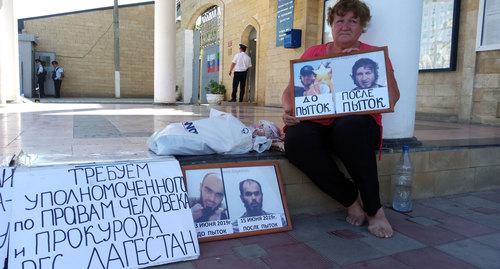 ДО ПЫТОК
ПОСЛЕ ПЫТОК
ТРЕБУЕМ
УПОЛНОМОЧЕННОГО
ПО ПРАВАМ ЧЕЛОВЕКА
И ПРОКУРОРА
РЕС. ДАГЕСТАН
13 ИЮНЯ 2019г.
ДО ПЫТОК
15 ИЮНЯ 2019г.
ПОСЛЕ ПЫТОК